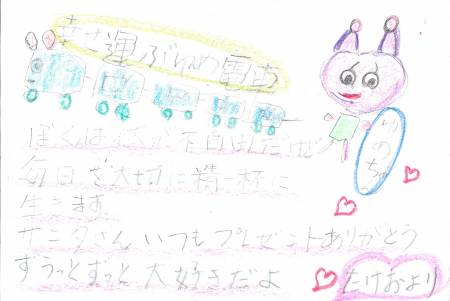 幸せ運ぶ 電車
ぼくは だけど
毎日を大切に精一杯に
生きます
サンタさん いつもプレゼントありがとう
ずうっとずっと 大好きだよ
たけおより